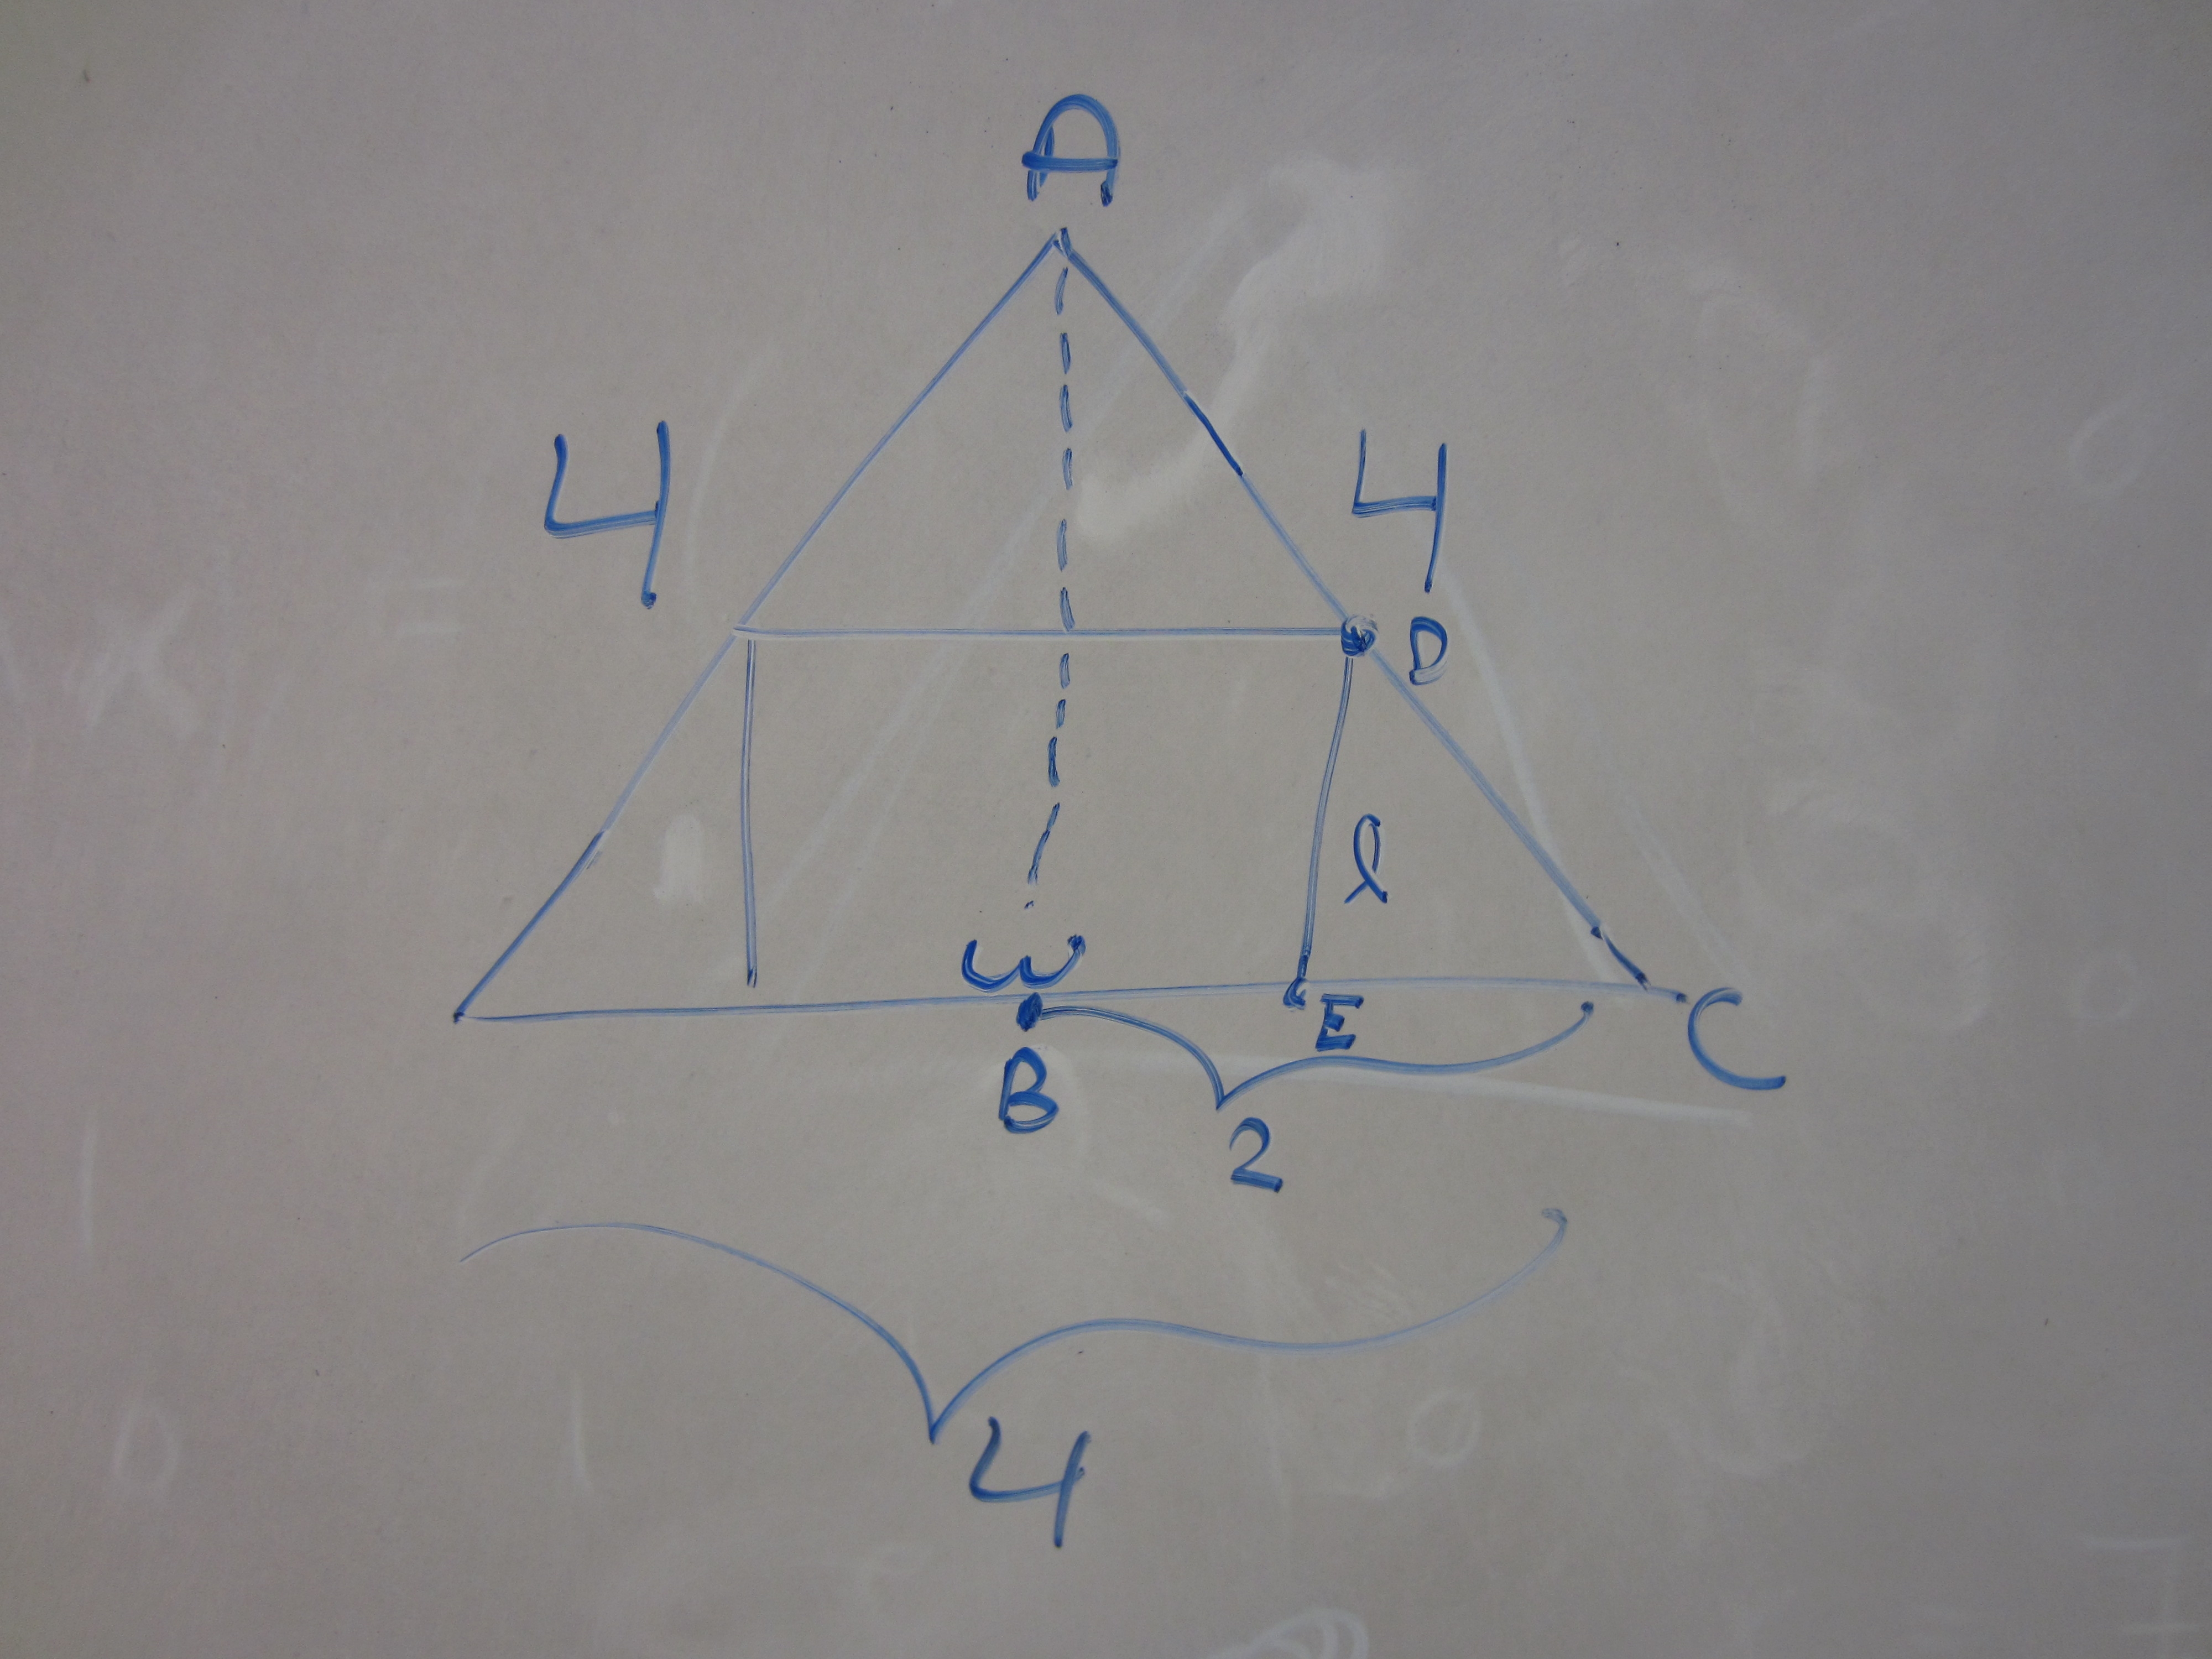 A
4 4
D
l
W
E
B
C
2
4